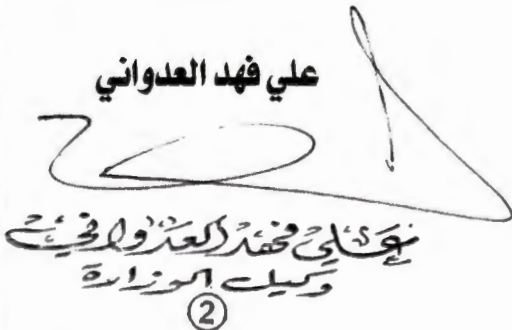 علي فهد العدواني
علي فهد العدواني
وكيل الوزارة
2